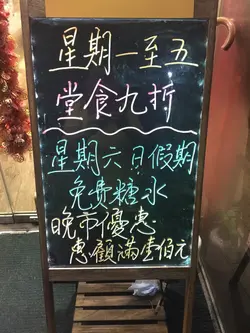 星期一至五
堂食九折
星期六日假期
免费糖水
晚市優惠
惠顧滿壹佰元